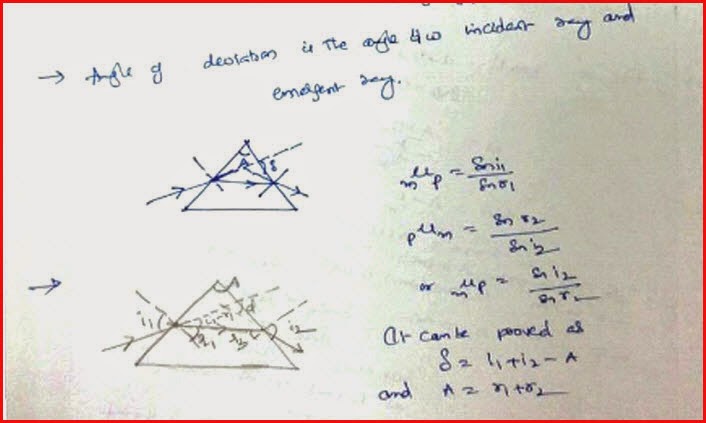 → Angle of deviation is the angle b/w incident ray and
emergent ray.
A
δ
mμp = Sin i1 / Sin r1
pμm = Sin r2 / Sin i2
or mμp = Sin i2 / Sin r2
→
A
i1 i1-r1 d i2
r1 r2
It can be proved as
δ = i1 + i2 - A
and A = r1 + r2